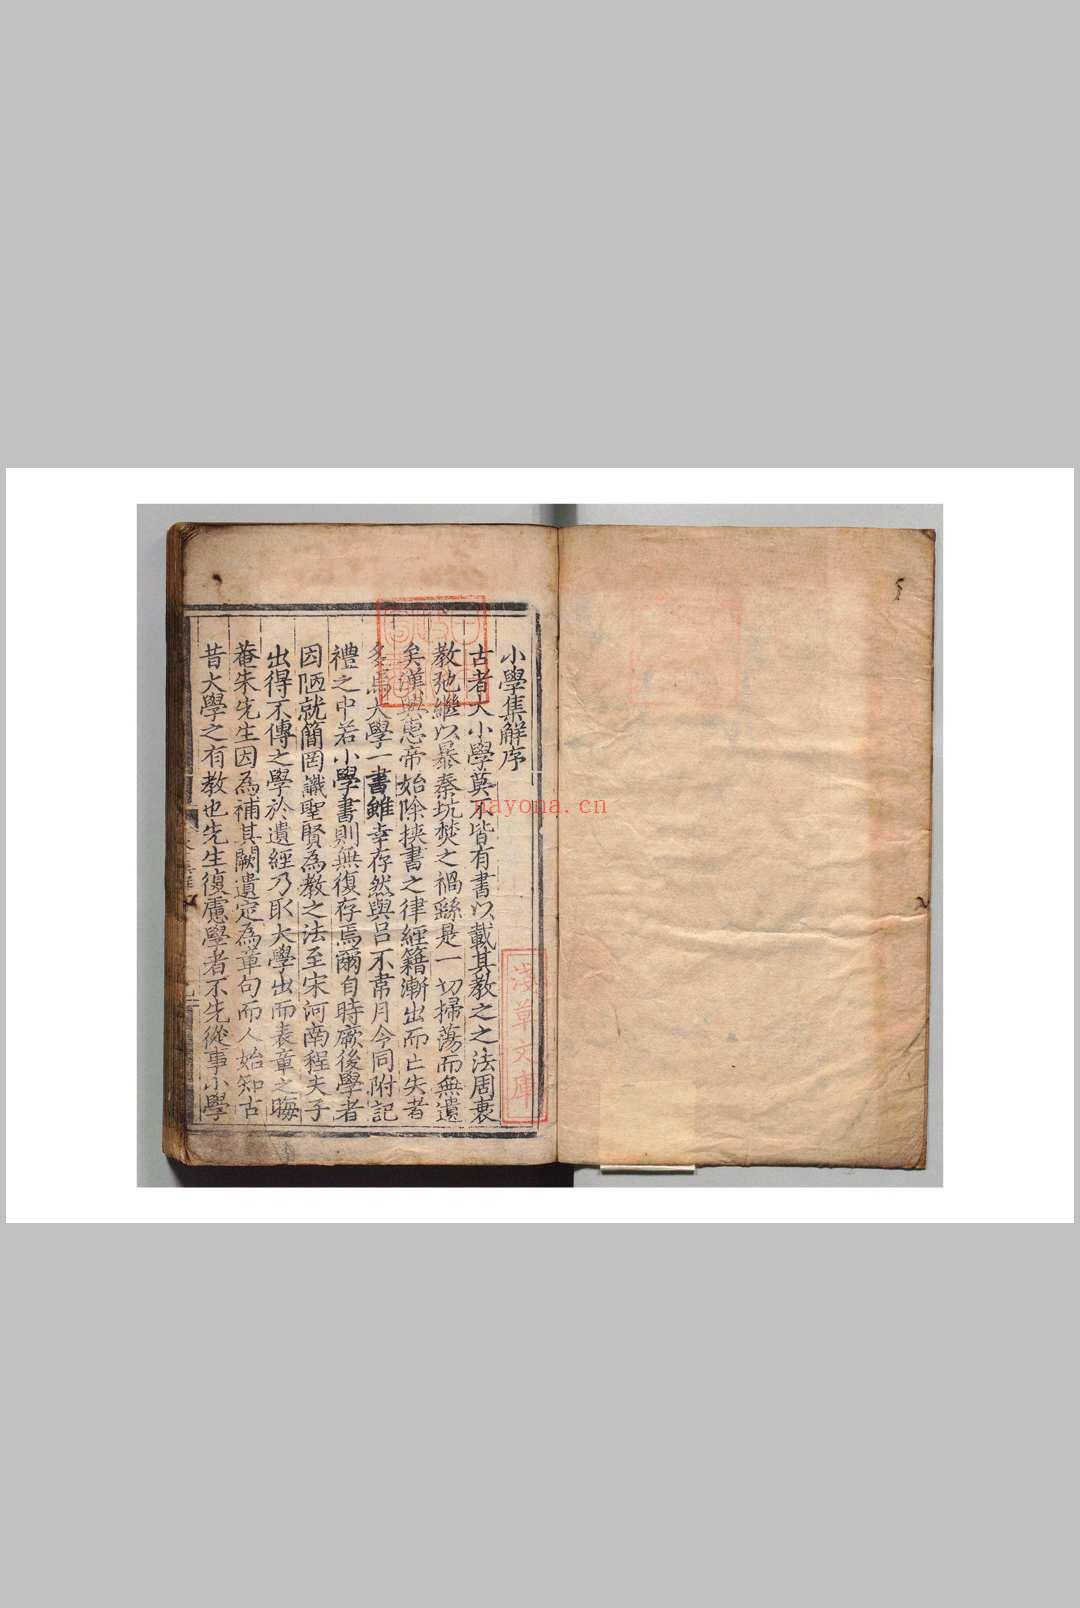 小學集解序
古者大小學莫不皆有書以載其教之之法周衰
教弛繼以暴秦坑焚之禍繇是一切掃蕩而無遺
矣漢興惠帝始除挾書之律經籍漸出而亡失者
多焉大學一書雖幸存然與呂不韋月令同附記
禮之中若小學書則無復存焉爾自時厥後學者
因陋就簡罔識聖賢為教之法至宋河南程夫子
出得不傳之學於遺經乃取大學出而表章之晦
菴朱先生因為補其闕遺定為章句而人始知古
昔大學之有教也先生復慮學者不先從事小學
淺草文庫
nayona.cn